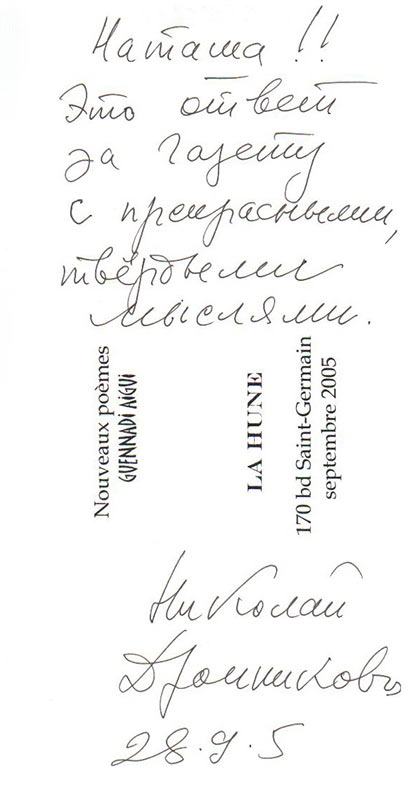 Наташа!!
Это ответ
за газету
с прекрасными,
твёрдыми
мыслями.
Nouveaux poèmes
GUENNADI AÏGUI
LA HUNE
170 bd Saint-Germain
septembre 2005
Николай
Дронниковъ
28.9.5